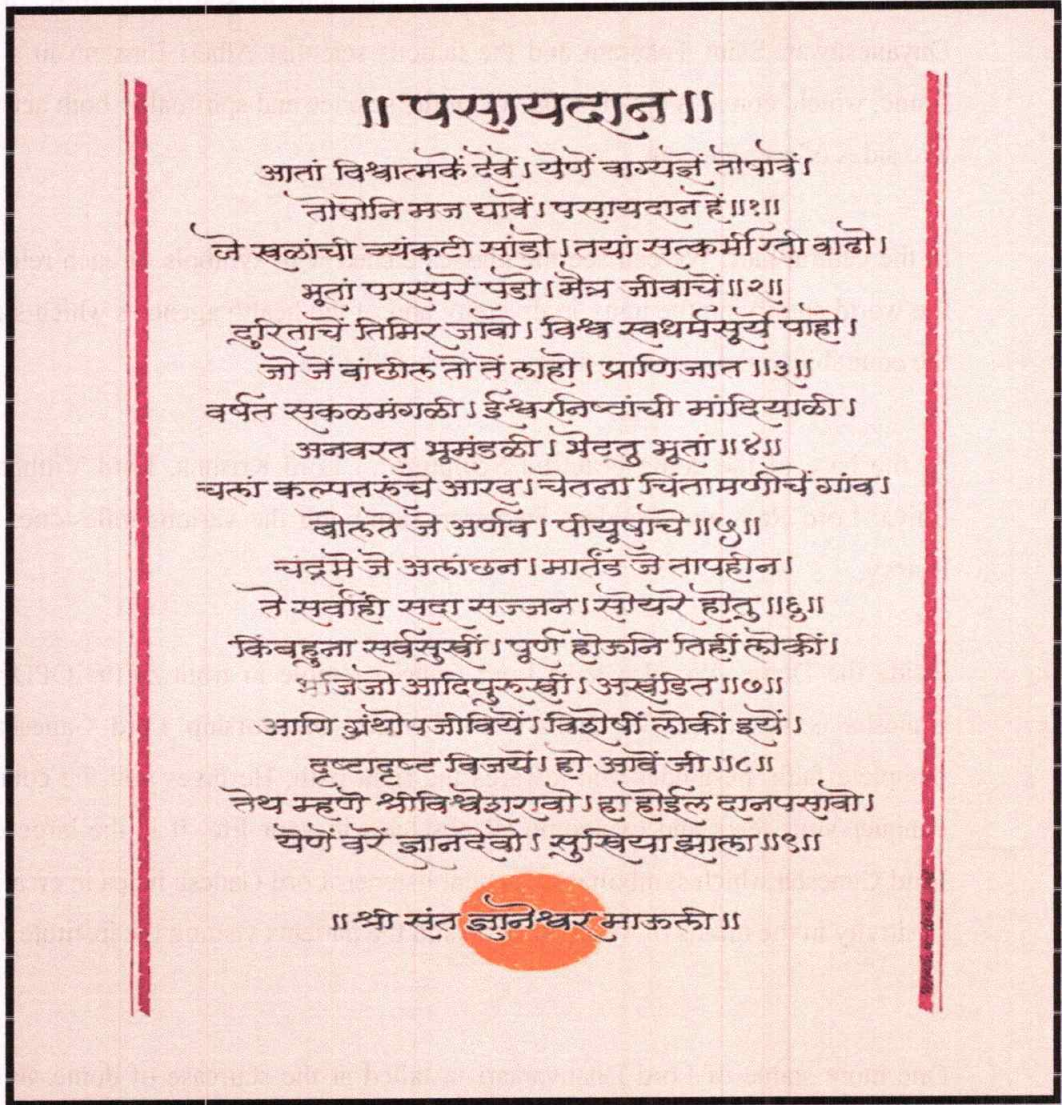 ॥ पसायदान ॥
आतां विश्वात्मकें देवें। येणें वाग्यज्ञें तोषावें।
तोषोनि मज द्यावें। पसायदान हें॥१॥
जे खळांची व्यंकटी सांडो। तयां सत्कर्मी रती वाढो।
भूतां परस्परें पडो। मैत्र जीवाचें॥२॥
दुरिताचें तिमिर जावो। विश्व स्वधर्मसूर्यें पाहो।
जो जें वांछील तो तें लाहो। प्राणिजात॥३॥
वर्षत सकळमंगळी। ईश्वरनिष्ठांची मांदियाळी।
अनवरत भूमंडळी। भेटतु भूतां॥४॥
चलां कल्पतरूंचे आरव। चेतना चिंतामणीचें गांव।
बोलते जे अर्णव। पीयूषाचे॥५॥
चंद्रमे जे अलांछन। मार्तंड जे तापहीन।
ते सर्वांही सदा सज्जन। सोयरे होतु॥६॥
किंबहुना सर्वसुखीं। पूर्ण होऊनि तिहीं लोकीं।
भजिजो आदिपुरुखीं। अखंडित॥७॥
आणि ग्रंथोपजीविये। विशेषीं लोकीं इयें।
दृष्टादृष्ट विजयें। हो आवें जी॥८॥
तेथ म्हणे श्रीविश्वेशरावो। हा होईल दानपसावो।
येणें वरें ज्ञानदेवो। सुखिया झाला॥९॥
॥ श्री संत ज्ञानेश्वर माऊली॥